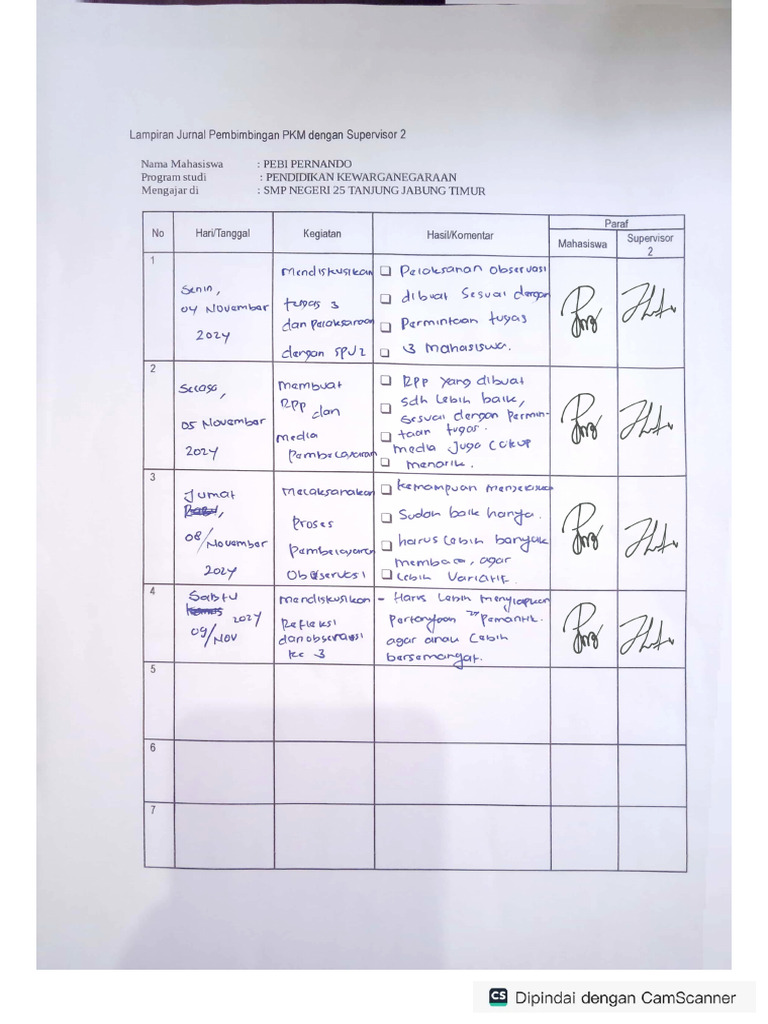 Lampiran Jurnal Pembimbingan PKM dengan Supervisor 2
Nama Mahasiswa : PEBI PERNANDO
Program studi : PENDIDIKAN KEWARGANEGARAAN
Mengajar di : SMP NEGERI 25 TANJUNG JABUNG TIMUR
No Hari/Tanggal Kegiatan Hasil/Komentar Paraf
Mahasiswa Supervisor 2
1
Senin,
04 November
2024
Mendiskusikan
tugas 3
dan Pelaksanaan
dengan SPV2
Pelaksanan observasi
dibuat Sesuai dengan
Permintaan tugas
3 Mahasiswa.
2
Selasa,
05 November
2024
Membuat
RPP dan
Media
Pembelajaran
RPP yang dibuat
Sdh Lebih baik,
Sesuai dengan Permin-
taan tugas.
media Juga Cukup
menarik.
3
Jumat
08/November
2024
Melaksanakan
Proses
Pembelajaran
Observasi
Kemampuan
Sudah baik hanya.
harus Lebih banyak
membaca, agar
Lebih Variatif.
4
Sabtu
2024
09/Nov
Mendiskusikan
Refleksi
dan observasi
ke 3
- Harus Lebih menyiapkan
Pertanyaan Pemantik.
agar anak Lebih
bersemangat.
5
6
7
CS Dipindai dengan CamScanner